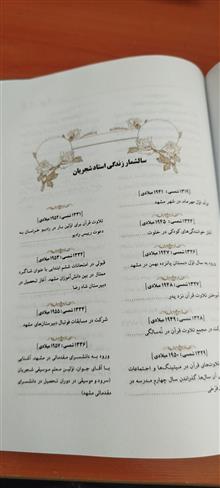 سالشمار زندگی استاد شجریان
[۱۳۱۹ شمسی؛ ۱۹۴۱ میلادی]
یکم مهرماه در شهر مشهد.
[۱۳۲۴ شمسی؛ ۱۹۴۵ میلادی]
آغاز خوانندگی‌های کودکی در خلوت.
[۱۳۲۶ شمسی؛ ۱۹۴۷ میلادی]
ورود به سال اول دبستان پانزده بهمن در مشهد.
[۱۳۲۷ شمسی؛ ۱۹۴۸ میلادی]
آموختن تلاوت قرآن نزد پدر.
[۱۳۲۸ شمسی؛ ۱۹۴۹ میلادی]
تلاوت در مجمع تلاوت قرآن در نُه‌سالگی.
[۱۳۲۹ شمسی؛ ۱۹۵۰ میلادی]
تلاوت‌های قرآن در میتینگ‌ها و اجتماعات
آن سال‌ها. گذراندن سال چهارم مدرسه در
فرخی
[۱۳۳۱ شمسی؛ ۱۹۵۲ میلادی]
تلاوت قرآن برای اولین بار در رادیو خراسان به
دعوت رییس رادیو
[۱۳۳۳ شمسی؛
قبولی در امتحانات ششم ابتدایی با عنوان شاگرد
ممتاز در بین دانش‌آموزان مشهد. آغاز تحصیل در
دبیرستان شاه رضا
[۱۳۳۴ شمسی؛ ۱۹۵۵ میلادی]
شرکت در مسابقات فوتبال دبیرستان‌های مشهد.
[۱۳۳۶ شمسی؛ ۱۹۵۷ میلادی]
ورود به دانشسرای مقدماتی مشهد. آشنایی
با آقای جوان، اولین معلم موسیقی شجریان
(سرود و موسیقی در دوران تحصیل در دانشسرای
مقدماتی مشهد)